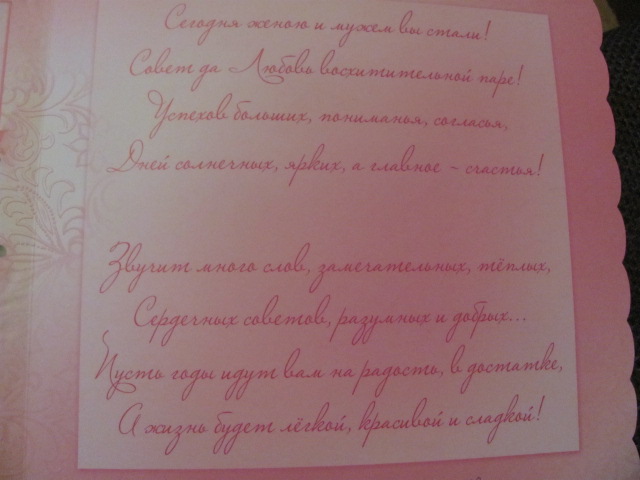 Сегодня женою и мужем вы стали!
Совет да Любовь восхитительной паре!
Успехов больших, пониманья, согласья,
Дней солнечных, ярких, а главное - счастья!
Звучит много слов, замечательных, тёплых,
Сердечных советов, разумных и добрых...
Пусть годы идут вам на радость, в достатке,
А жизнь будет лёгкой, красивой и сладкой!